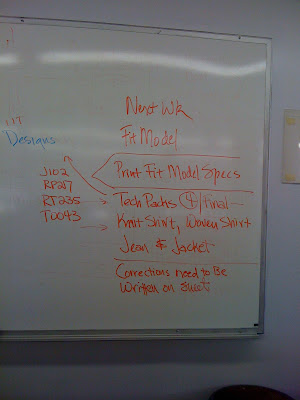 Next Wk
Fit Model
Designs
Print Fit Model Specs
J102
RP217
RT235
T0043
Tech Packs /Final
Knit Shirt, Woven Shirt
Jean & Jacket
Corrections need to Be
Written on